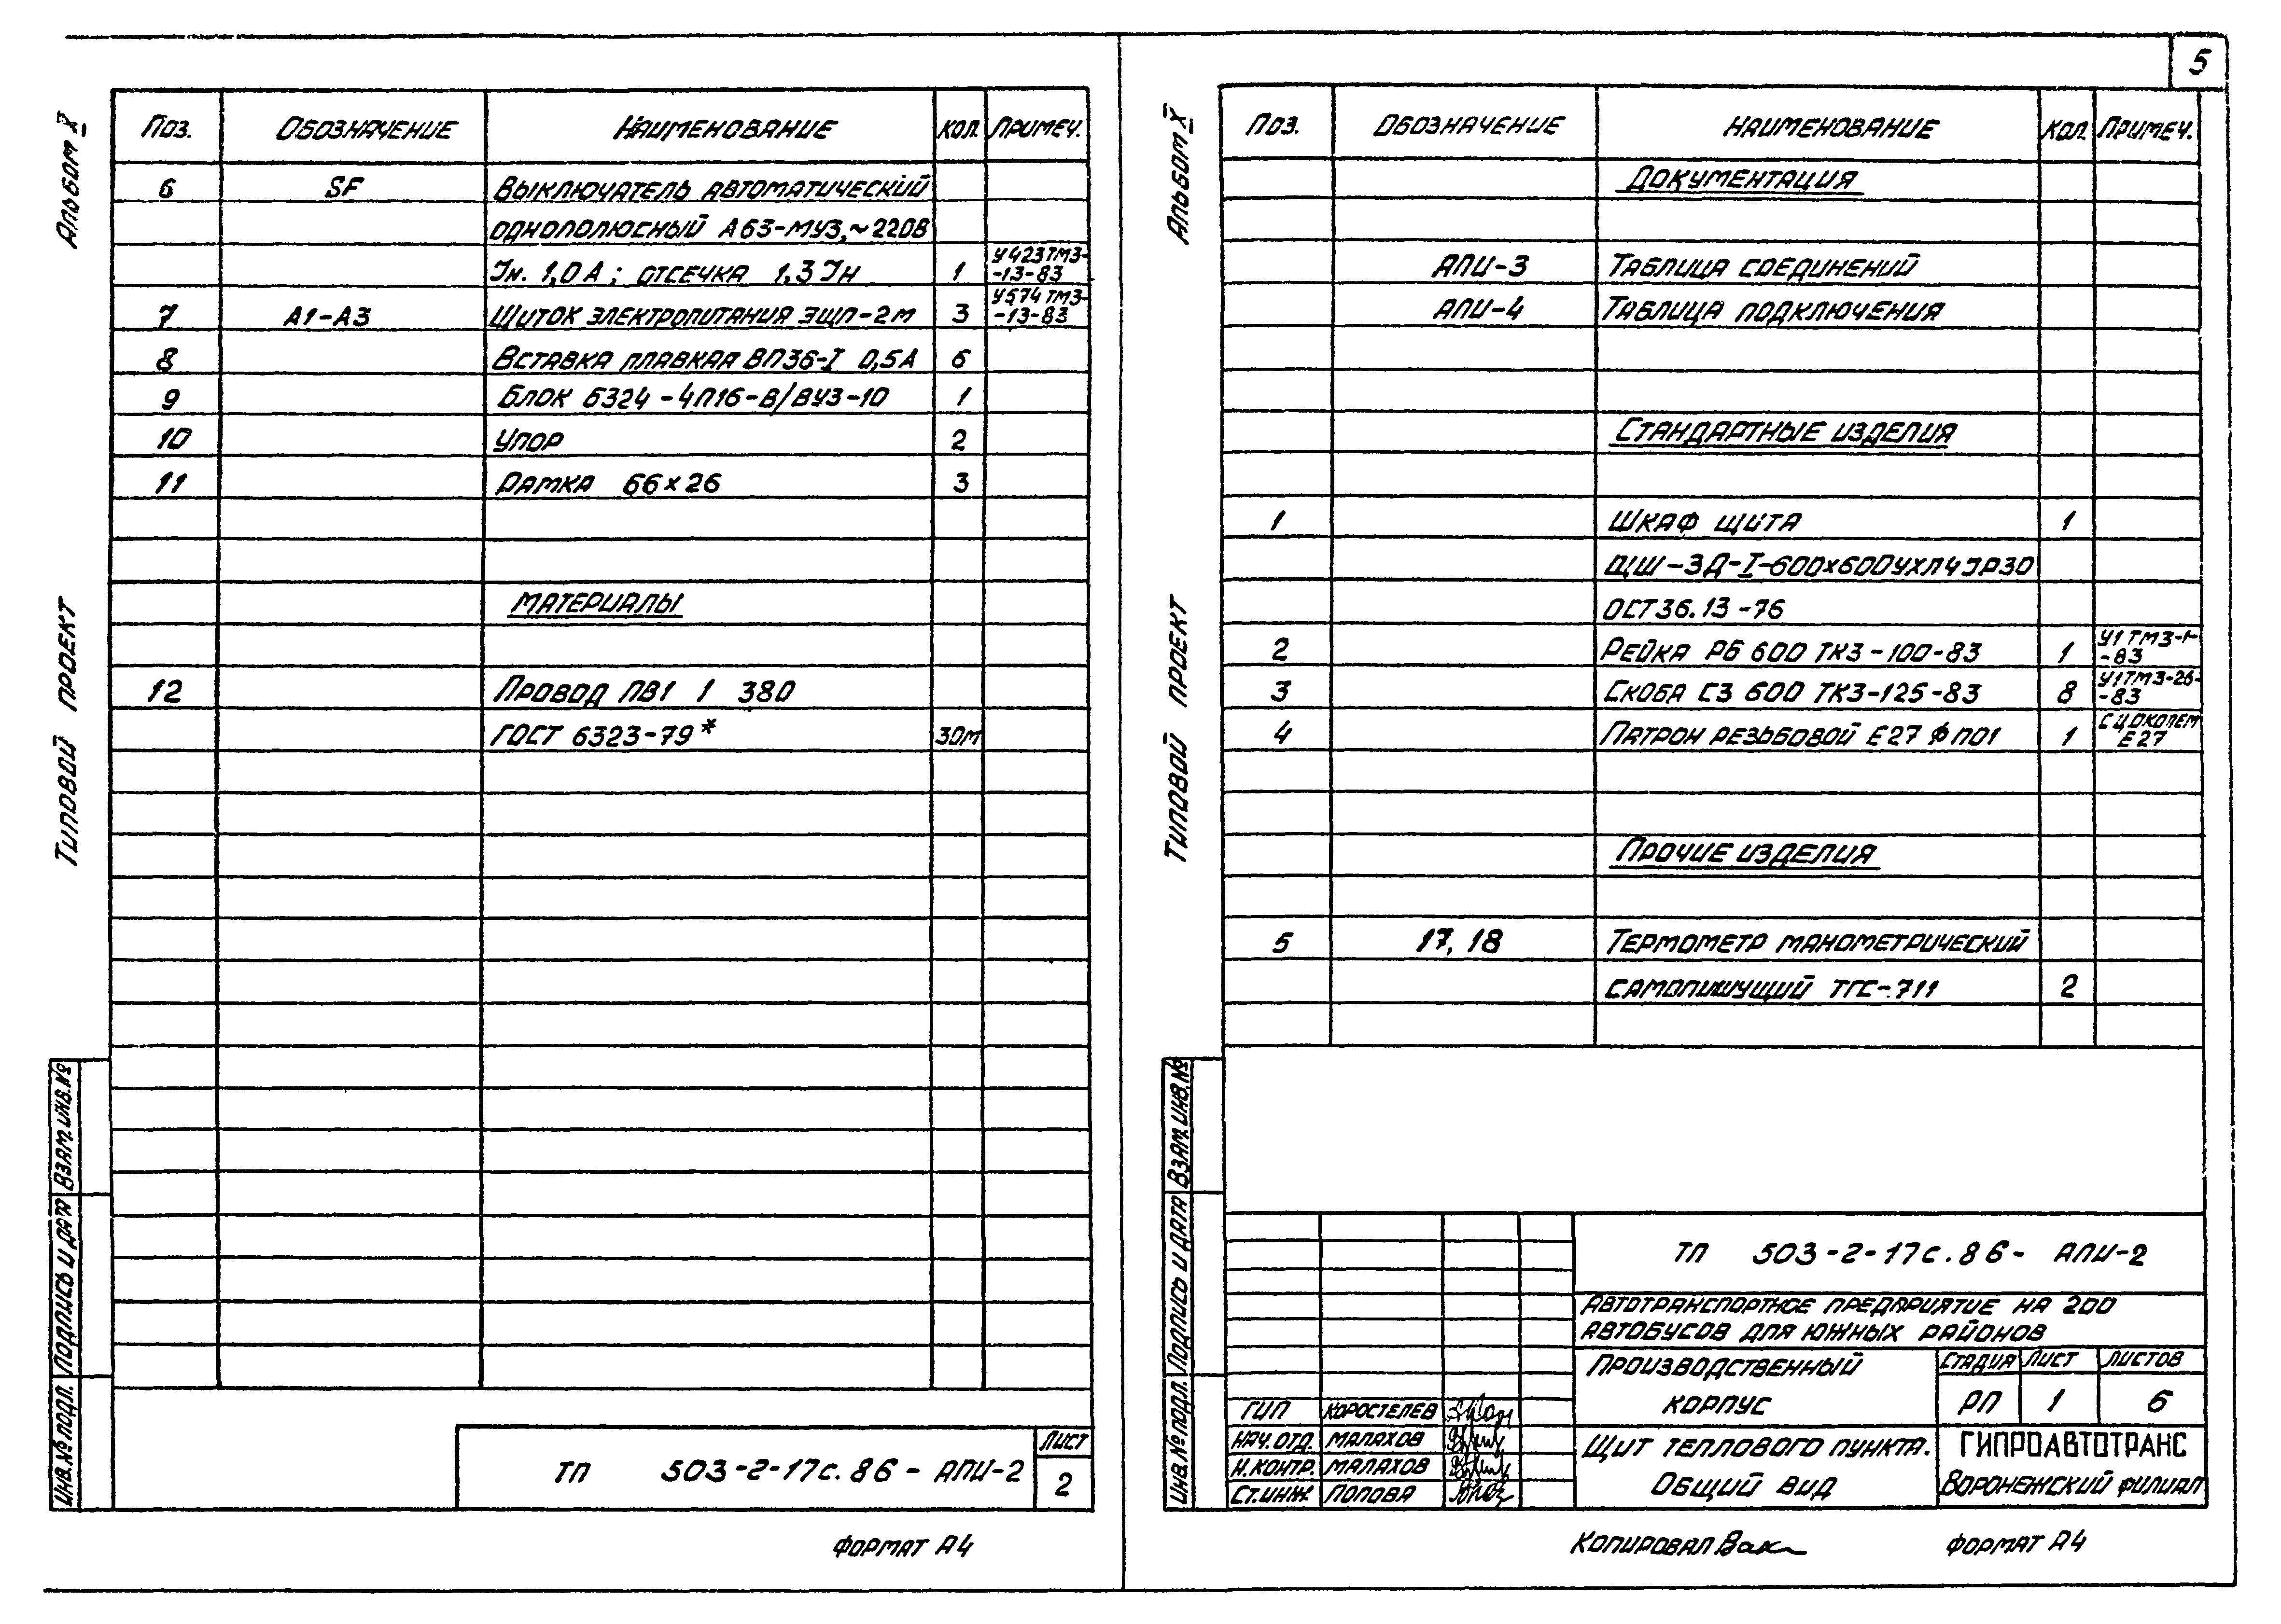 5
Альбом X
Типовой проект
Поз. Обозначение Наименование Кол. Примеч.
6 SF Выключатель автоматический
однополюсный А63-МУ3,~220В
Iн. 1,0А; отсечка 1,3 Iн 1 У423ТМ3-
-13-83
7 А1-А3 Щиток электропитания ЭЩП-2м 3 У574 ТМ3-
-13-83
8 Вставка плавкая ВП36-I 0,5А 6
9 Блок Б324-4П16-В/ВУ3-10 1
10 Упор 2
11 Рамка 66×26 3
Материалы
12 Провод ПВ1 1 380
ГОСТ 6323-79* 30м
Взам. инв.№
Подпись и дата
Инв.№ подл.
ТП 503-2-17с.86- АПИ-2
Лист
2
Формат А4
Альбом X
Типовой проект
Поз. Обозначение Наименование Кол. Примеч.
Документация
АПИ-3 Таблица соединений
АПИ-4 Таблица подключения
Стандартные изделия
1 Шкаф щита 1
ЩШ-ЗД-I-600×600УХЛ4 IР30
ОСТ36.13-76
2 Рейка РБ 600 ТК3-100-83 1 У1 ТМ3-1-
-83
3 Скоба С3 600 ТК3-125-83 8 У1ТМ3-26-
-83
4 Патрон резьбовой Е27 Фп01 1 С цоколем
Е27
Прочие изделия
5 17, 18 Термометр манометрический
самопишущий ТГС-711 2
Взам. инв.№
Подпись и дата
Инв.№ подл.
ТП 503-2-17с.86- АПИ-2
Автотранспортное предприятие на 200
автобусов для южных районов
Производственный
корпус
Стадия Лист Листов
РП 1 6
ГИП Коростелев
Нач.отд. Малахов
Н.контр. Малахов
Ст.инж Попова
Щит теплового пункта.
Общий вид
ГИПРОАВТОТРАНС
Воронежский филиал
Копировал Вак
Формат А4